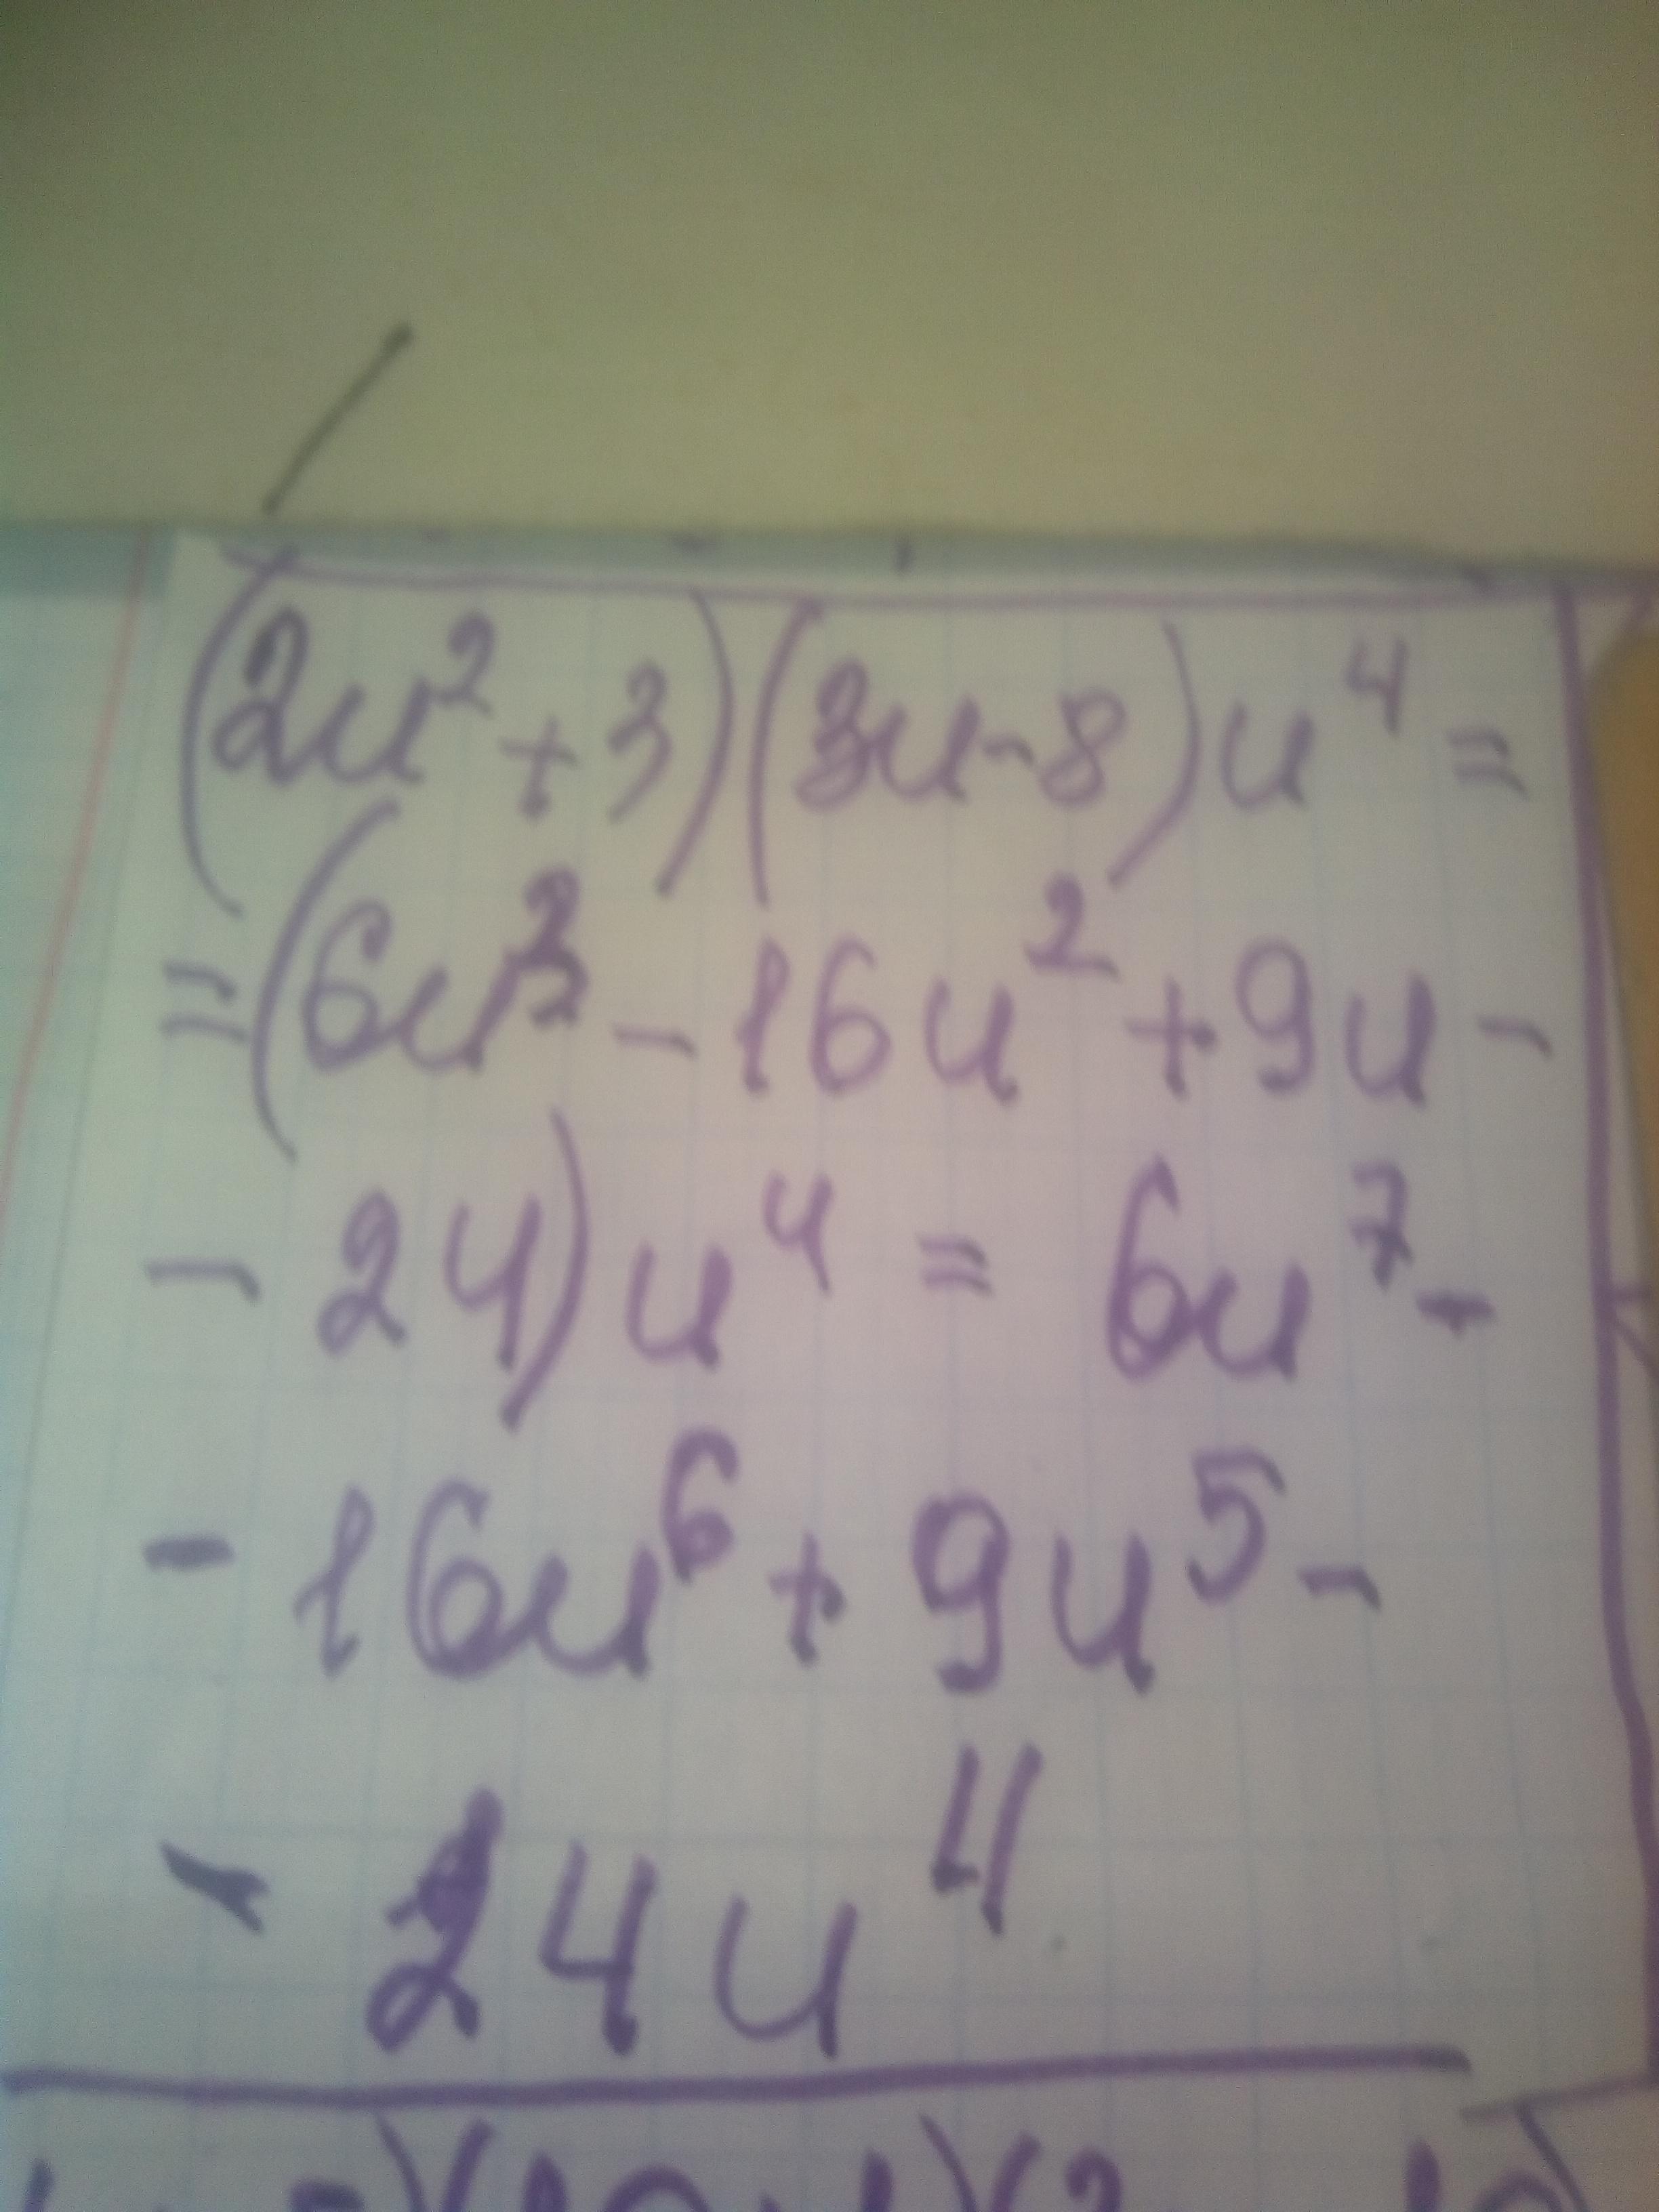 (2u²+3)(3u-8)u⁴=
=(6u³-16u²+9u-
-24)u⁴=6u⁷-
-16u⁶+9u⁵-
-24u⁴